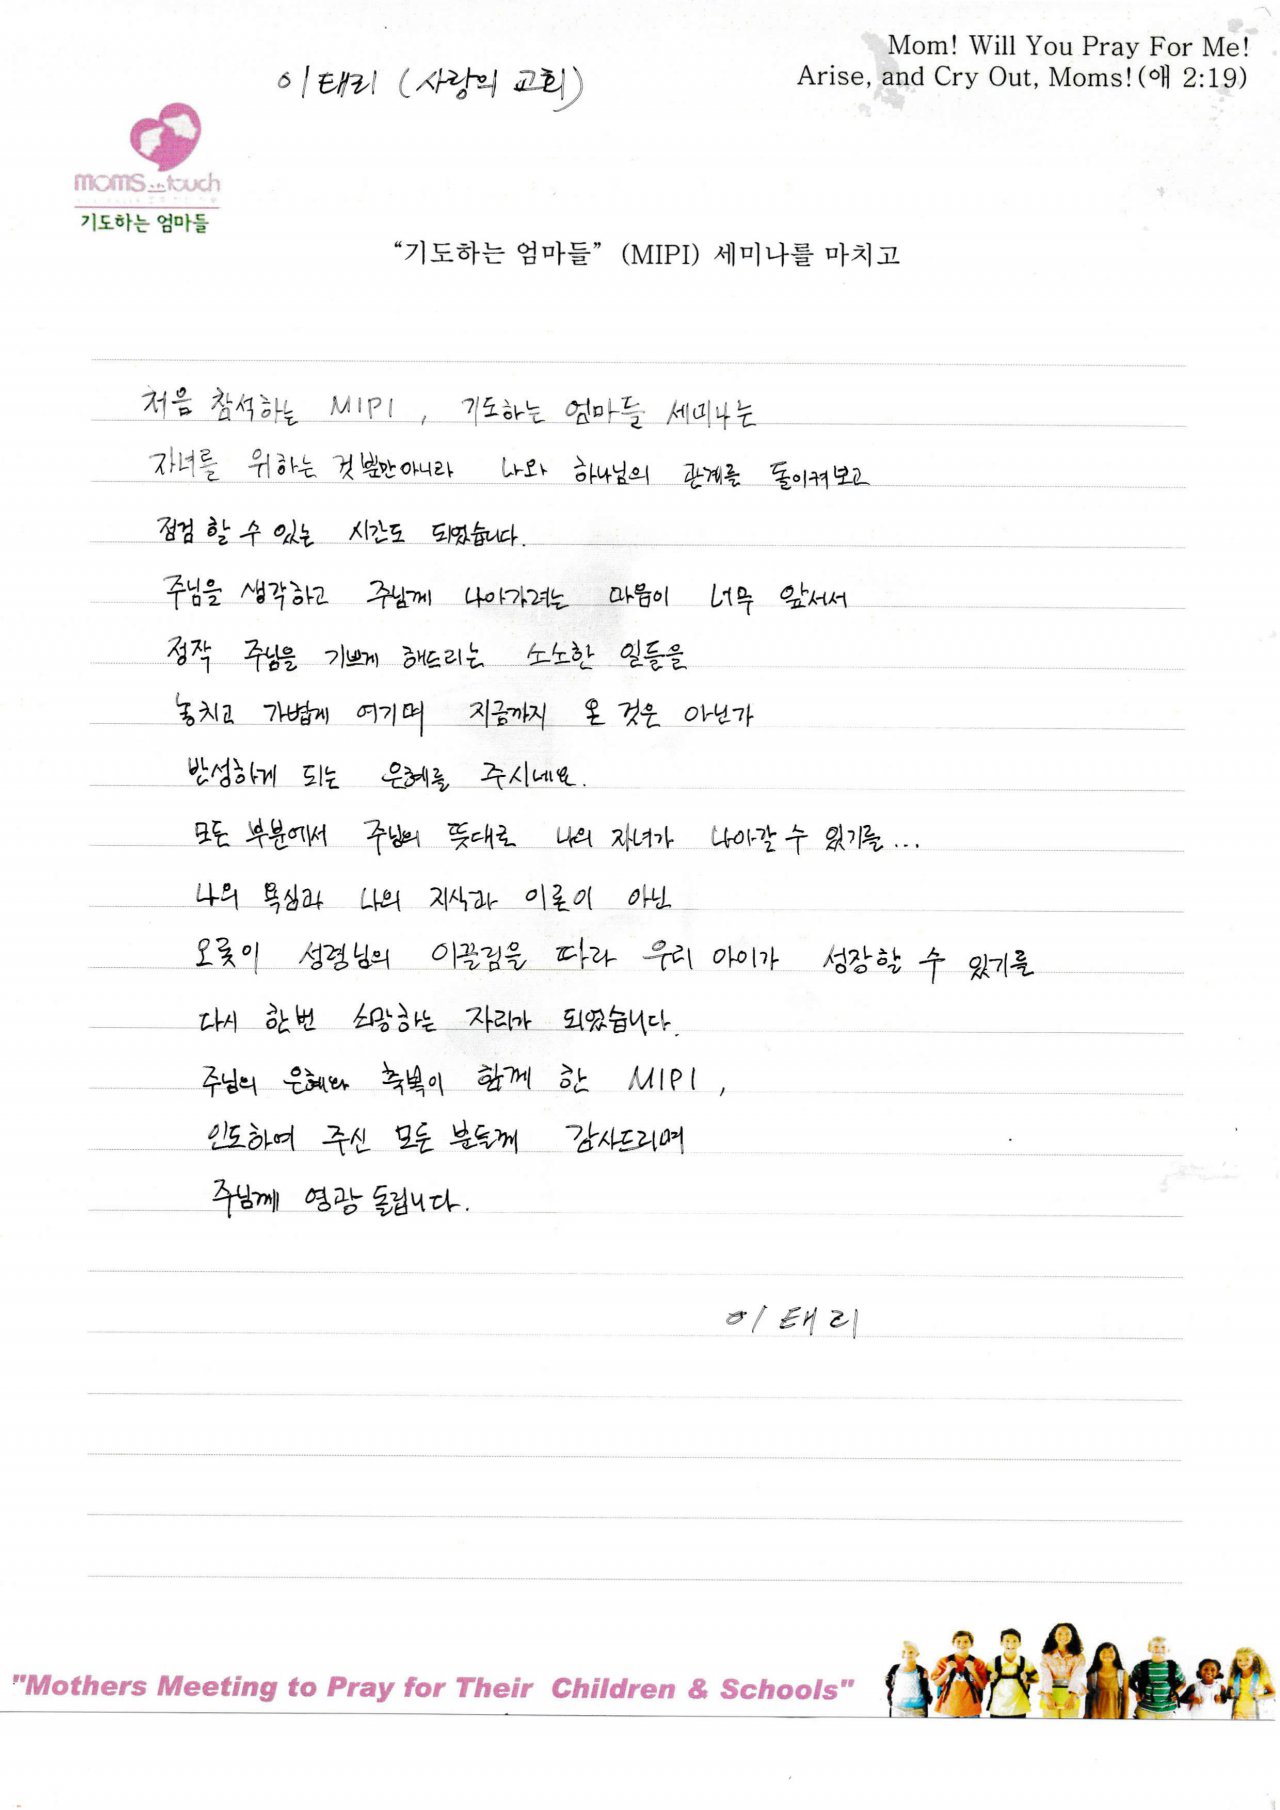 Mom! Will You Pray For Me!
이태리 (사랑의 교회)
Arise, and Cry Out, Moms!(애 2:19)
moms in touch
기도하는 엄마들
“기도하는 엄마들” (MIPI) 세미나를 마치고
처음 참석하는 MIPI , 기도하는 엄마들 세미나는
자녀를 위하는 것 뿐만아니라 나와 하나님의 관계를 돌이켜보고
점검 할 수 있는 시간도 되었습니다.
주님을 생각하고 주님께 나아가려는 마음이 너무 앞서서
정작 주님을 기쁘게 해드리는 소소한 일들을
놓치고 가볍게 여기며 지금까지 온 것은 아닌가
반성하게 되는 은혜를 주시네요.
모든 부분에서 주님의 뜻대로 나의 자녀가 나아갈 수 있기를...
나의 욕심과 나의 지식과 이론이 아닌
오롯이 성령님의 이끌림을 따라 우리 아이가 성장할 수 있기를
다시 한번 소망하는 자리가 되었습니다.
주님의 은혜와 축복이 함께 한 MIPI ,
인도하여 주신 모든 분들께 감사드리며
주님께 영광 돌립니다.
이태리
"Mothers Meeting to Pray for Their Children & Schools"